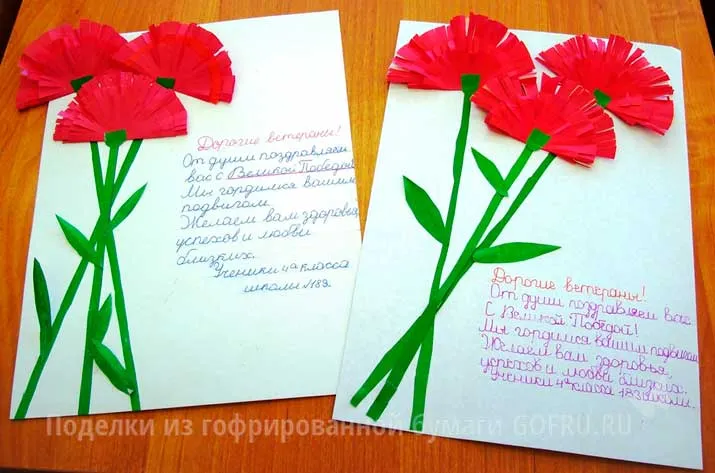 Дорогие ветераны!
От души поздравляем
вас с Великой Победой
Мы гордимся вашим
подвигом.
Желаем вам здоровья,
успехов и любви
близких.
Ученики 4а класса
школы №189
Дорогие ветераны!
От души поздравляем вас
С Великой Победой!
Мы гордимся вашим подвигом
Желаем вам здоровья,
успехов и любви близких.
Ученики 4а класса школы.
Поделки из гофрированной бумаги GOFRU.RU